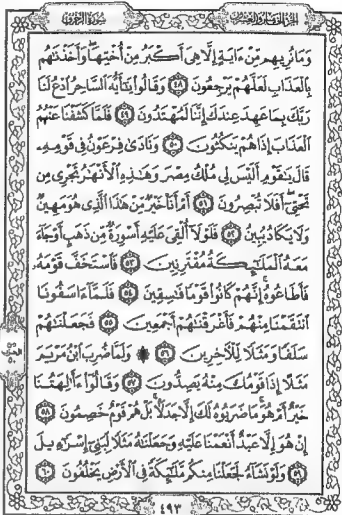 الجزء الخامس والعشرون
سورة الزخرف
وَمَا نُرِيهِم مِّنْ ءَايَةٍ إِلَّا هِىَ أَكْبَرُ مِنْ أُخْتِهَا وَأَخَذْنَٰهُم
بِالْعَذَابِ لَعَلَّهُمْ يَرْجِعُونَ ٤٨ وَقَالُوا۟ يَٰٓأَيُّهَ السَّاحِرُ ادْعُ لَنَا
رَبَّكَ بِمَا عَهِدَ عِندَكَ إِنَّنَا لَمُهْتَدُونَ ٤٩ فَلَمَّا كَشَفْنَا عَنْهُمُ
الْعَذَابَ إِذَا هُمْ يَنكُثُونَ ٥٠ وَنَادَىٰ فِرْعَوْنُ فِى قَوْمِهِۦ
قَالَ يَٰقَوْمِ أَلَيْسَ لِى مُلْكُ مِصْرَ وَهَٰذِهِ الْأَنْهَٰرُ تَجْرِى مِن
تَحْتِىٓ أَفَلَا تُبْصِرُونَ ٥١ أَمْ أَنَا۠ خَيْرٌ مِّنْ هَٰذَا الَّذِى هُوَ مَهِينٌ
وَلَا يَكَادُ يُبِينُ ٥٢ فَلَوْلَآ أُلْقِىَ عَلَيْهِ أَسْوِرَةٌ مِّن ذَهَبٍ أَوْ جَآءَ
مَعَهُ الْمَلَٰٓئِكَةُ مُقْتَرِنِينَ ٥٣ فَاسْتَخَفَّ قَوْمَهُۥ
فَأَطَاعُوهُ إِنَّهُمْ كَانُوا۟ قَوْمًا فَٰسِقِينَ ٥٤ فَلَمَّآ ءَاسَفُونَا
انتَقَمْنَا مِنْهُمْ فَأَغْرَقْنَٰهُمْ أَجْمَعِينَ ٥٥ فَجَعَلْنَٰهُمْ
سَلَفًا وَمَثَلًا لِّلْءَاخِرِينَ ٥٦ وَلَمَّا ضُرِبَ ابْنُ مَرْيَمَ
مَثَلًا إِذَا قَوْمُكَ مِنْهُ يَصِدُّونَ ٥٧ وَقَالُوٓا۟ ءَأَٰلِهَتُنَا
خَيْرٌ أَمْ هُوَ مَا ضَرَبُوهُ لَكَ إِلَّا جَدَلًۢا بَلْ هُمْ قَوْمٌ خَصِمُونَ ٥٨
إِنْ هُوَ إِلَّا عَبْدٌ أَنْعَمْنَا عَلَيْهِ وَجَعَلْنَٰهُ مَثَلًا لِّبَنِىٓ إِسْرَٰٓءِيلَ
٥٩ وَلَوْ نَشَآءُ لَجَعَلْنَا مِنكُم مَّلَٰٓئِكَةً فِى الْأَرْضِ يَخْلُفُونَ ٦٠
٤٩٣